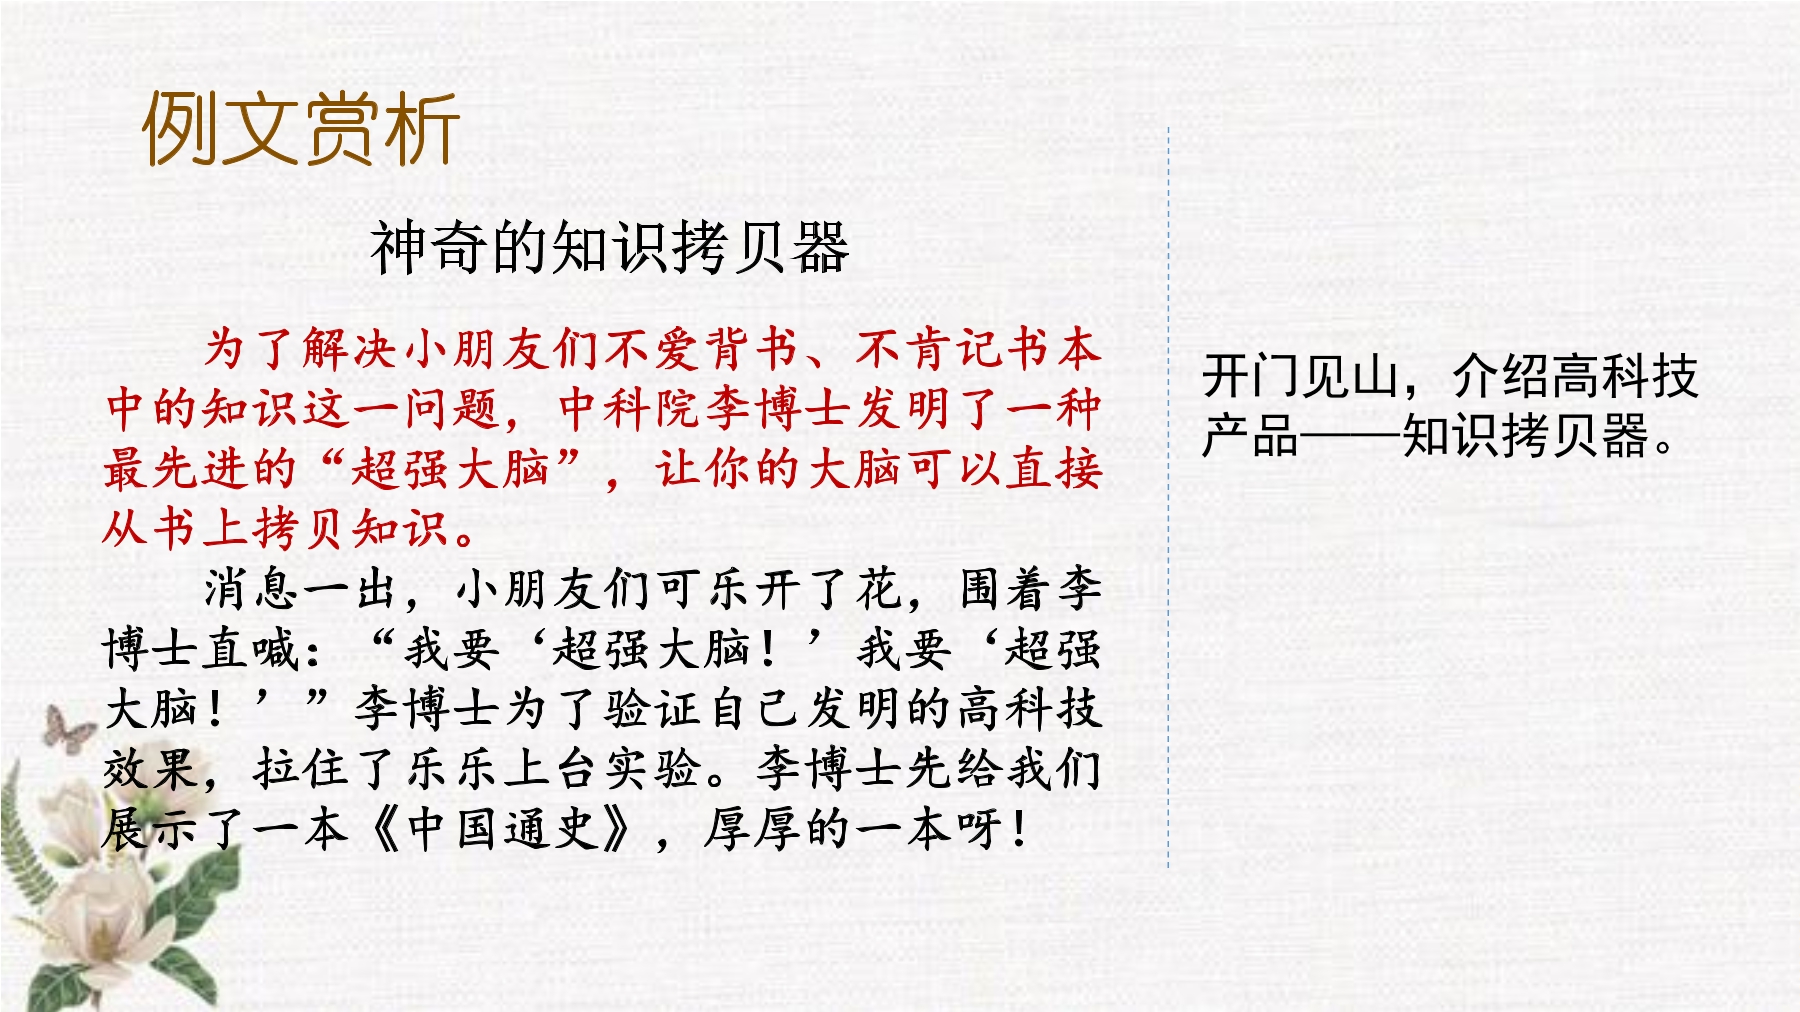 例文赏析
神奇的知识拷贝器
为了解决小朋友们不爱背书、不肯记书本
中的知识这一问题，中科院李博士发明了一种
最先进的“超强大脑”，让你的大脑可以直接
从书上拷贝知识。
消息一出，小朋友们可乐开了花，围着李
博士直喊：“我要‘超强大脑！’我要‘超强
大脑！’”李博士为了验证自己发明的高科技
效果，拉住了乐乐上台实验。李博士先给我们
展示了一本《中国通史》，厚厚的一本呀！
开门见山，介绍高科技
产品——知识拷贝器。